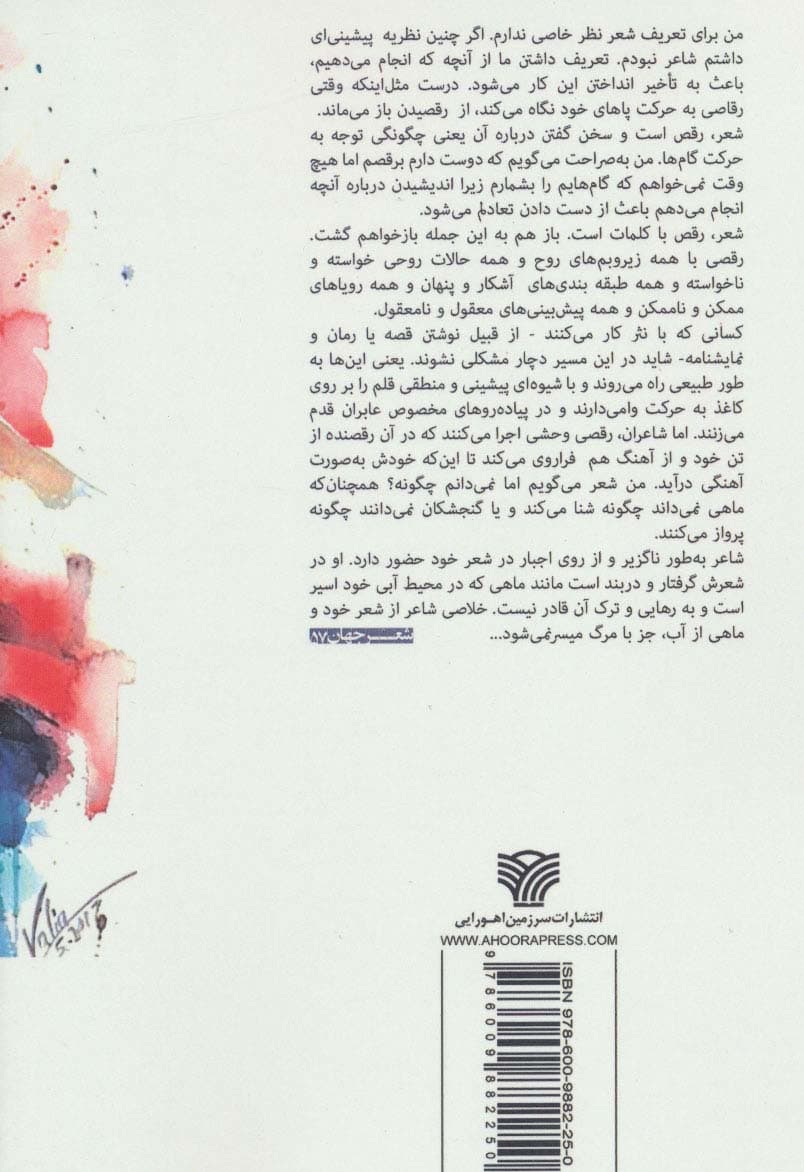 من برای تعریف شعر نظر خاصی ندارم. اگر چنین نظریه پیشینی‌ای
داشتم شاعر نبودم. تعریف داشتن ما از آنچه که انجام می‌دهیم،
باعث به تأخیر انداختن این کار می‌شود. درست مثل‌اینکه وقتی
رقاصی به حرکت پاهای خود نگاه می‌کند، از رقصیدن باز می‌ماند.
شعر، رقص است و سخن گفتن درباره آن یعنی چگونگی توجه به
حرکت گام‌ها. من به‌صراحت می‌گویم که دوست دارم برقصم اما هیچ
وقت نمی‌خواهم که گام‌هایم را بشمارم زیرا اندیشیدن درباره آنچه
انجام می‌دهم باعث از دست دادن تعادلم می‌شود.
شعر، رقص با کلمات است. باز هم به این جمله بازخواهم گشت.
رقصی با همه زیروبم‌های روح و همه حالات روحی خواسته و
ناخواسته و همه طبقه بندی‌های آشکار و پنهان و همه رویاهای
ممکن و ناممکن و همه پیش‌بینی‌های معقول و نامعقول.
کسانی که با نثر کار می‌کنند - از قبیل نوشتن قصه یا رمان و
نمایشنامه- شاید در این مسیر دچار مشکلی نشوند. یعنی این‌ها به
طور طبیعی راه می‌روند و با شیوه‌ای پیشینی و منطقی قلم را بر روی
کاغذ به حرکت وامی‌دارند و در پیاده‌روهای مخصوص عابران قدم
می‌زنند. اما شاعران، رقصی وحشی اجرا می‌کنند که در آن رقصنده از
تن خود و از آهنگ هم فراروی می‌کند تا این‌که خودش به‌صورت
آهنگی درآید. من شعر می‌گویم اما نمی‌دانم چگونه؟ همچنان‌که
ماهی نمی‌داند چگونه شنا می‌کند و یا گنجشکان نمی‌دانند چگونه
پرواز می‌کنند.
شاعر به‌طور ناگزیر و از روی اجبار در شعر خود حضور دارد. او در
شعرش گرفتار و دربند است مانند ماهی که در محیط آبی خود اسیر
است و به رهایی و ترک آن قادر نیست. خلاصی شاعر از شعر خود و
ماهی از آب، جز با مرگ میسرنمی‌شود...
شعر جهان ۸۷
انتشارات سرزمین اهورایی
WWW.AHOORAPRESS.COM
ISBN 978-600-9882-25-0
9 786009 882250
5.2013